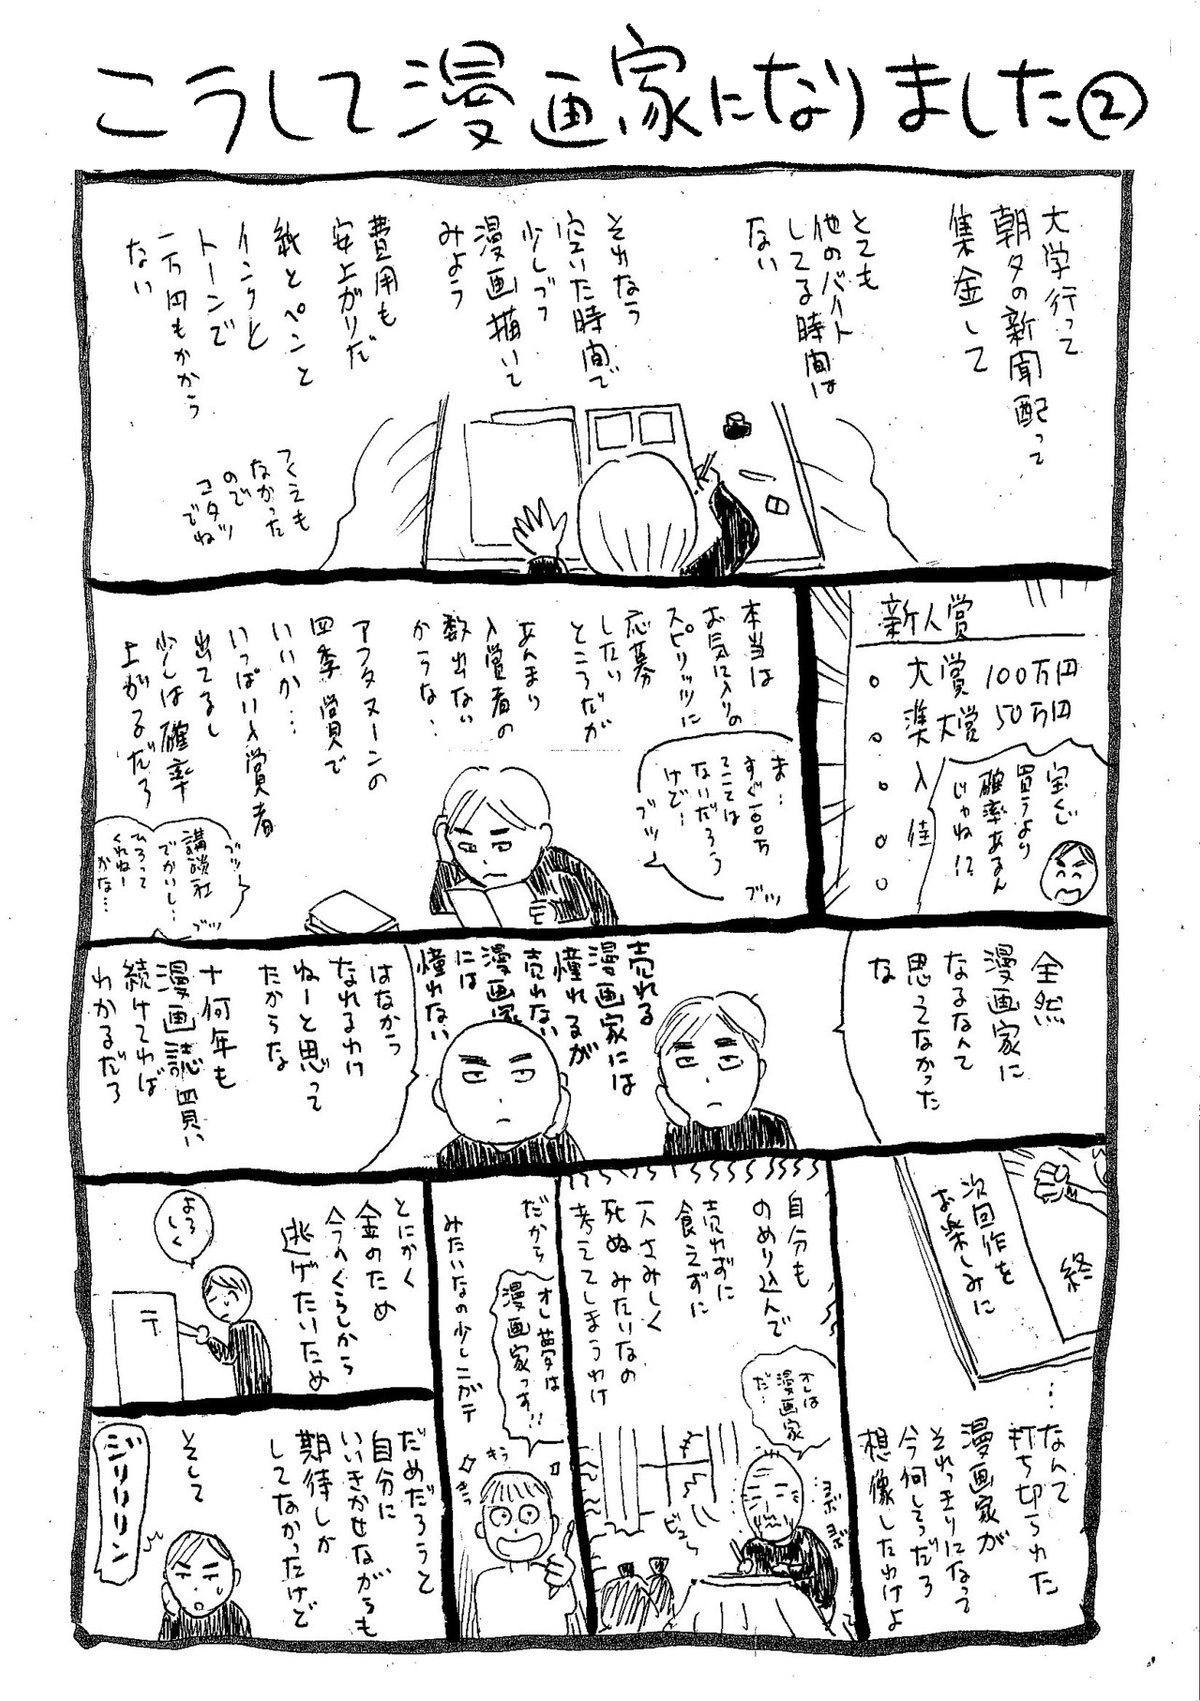 こうして漫画家になりました②
大学行って
朝夕の新聞配って
集金して
とても
他のバイト
してる時間は
ない
それなら
空いた時間で
少しづつ
漫画描いて
みよう
費用も
安上がりだ
紙とペンと
インクと
トーンで
一万円もかから
ない
つくえも
なかった
ので
コタツ
でね
新人賞
大賞 100万円
準大賞 50万円
入
佳
宝くじ
買うより
確率あるん
じゃね!?
本当は
お気に入りの
スピリッツに
応募
したい
ところだが
あんまり
入賞者の
数出ない
からな・
アフタヌーンの
四季賞で
いいか…
いっぱい入賞者
出てるし
少しは確率
上がるだろ
ま…
すぐ一〇〇万
てことは
ないだろう
けど…
ブツ
ブツ
ブツ
講談社
でかいし…
ひろって
くれねー
かな…
ブツ
全然
漫画家に
なるなんて
思ってなかった
な
売れる
漫画家には
憧れるが
売れない
漫画家
には
憧れない
はなから
なれるわけ
ねーと思って
たからな
十何年も
漫画読買い
続けてれば
わかるだろ
終
次回作を
お楽しみに
…なんて
打ち切られた
漫画家が
それっきりになって
今何してっだろ
想像したわけよ
自分も
のめり込んで
売れずに
食えずに
一人さみしく
死ぬみたいなの
考えてしまうわけ
オレは
漫画家
だ…
ヨボ
ヨボ
ビュー
だから
オレ夢は
漫画家っす!!
みたいなの少しニガテ
キラ
キラ
とにかく
金のため
今のくらしから
逃げたいため
よろ
しく
〒
だめだろうと
自分に
いいきかせながらも
期待しか
してなかったけど
そして
ジリリリリン